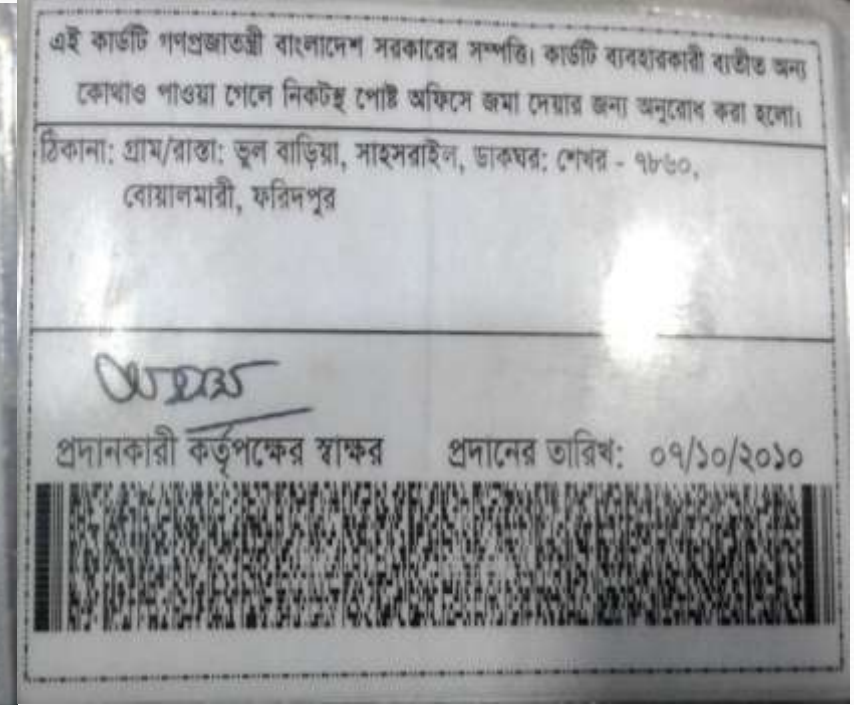 এই কার্ডটি গণপ্রজাতন্ত্রী বাংলাদেশ সরকারের সম্পত্তি। কার্ডটি ব্যবহারকারী ব্যতীত অন্য
কোথাও পাওয়া গেলে নিকটস্থ পোষ্ট অফিসে জমা দেয়ার জন্য অনুরোধ করা হলো।
ঠিকানা: গ্রাম/রাস্তা: ভুল বাড়িয়া, সাহসরাইল, ডাকঘর: শেখর - ৭৮৬০,
বোয়ালমারী, ফরিদপুর
প্রদানকারী কর্তৃপক্ষের স্বাক্ষর প্রদানের তারিখ: ০৭/১০/২০১০